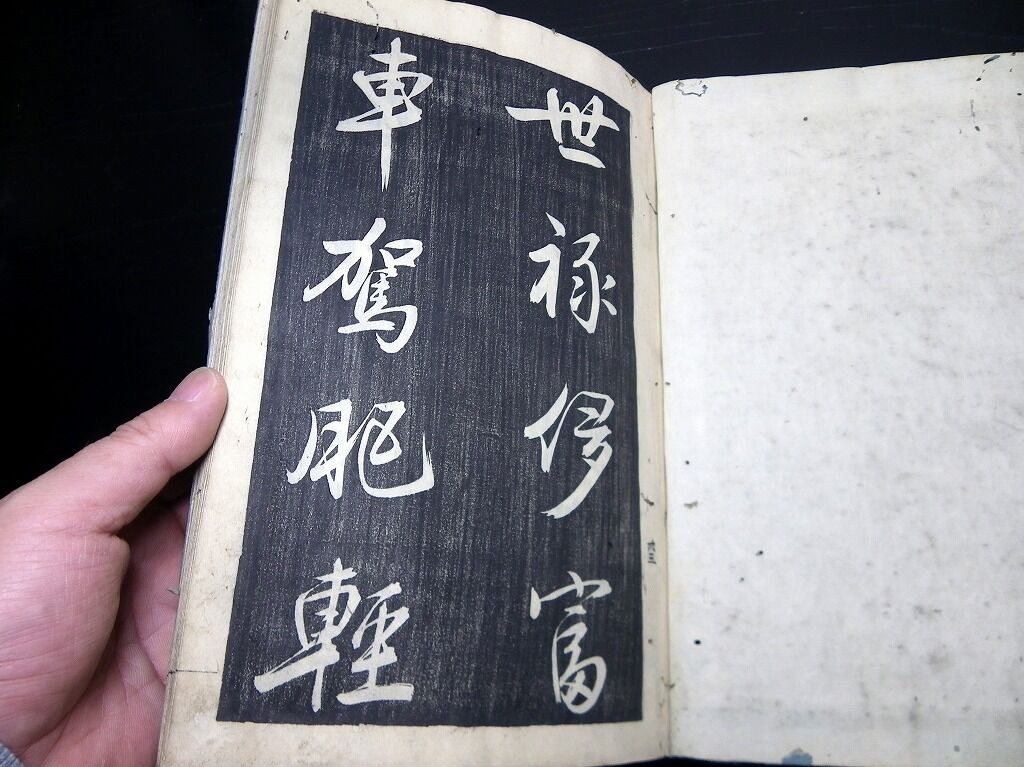 世禄侈富
車駕肥輕